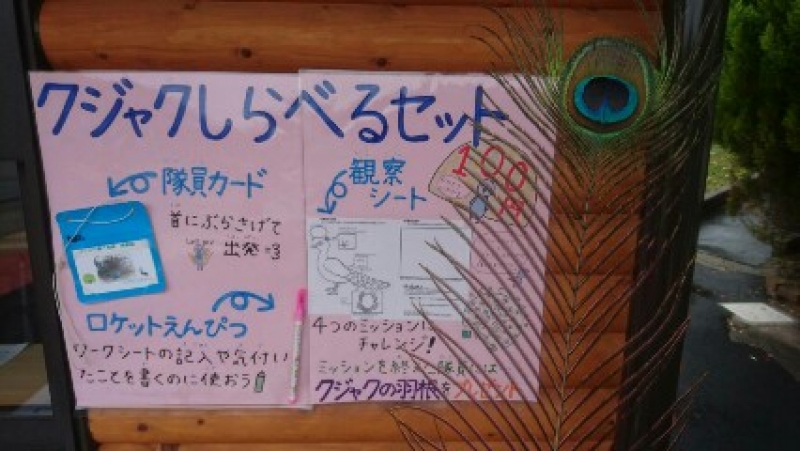 クジャクしらべるセット
隊員カード
首にぶらさげて
出発=3
ロケットえんぴつ
ワークシートの記入や気付い
たことを書くのに使おう
観察
シート
100
円
4つのミッションに
チャレンジ!
ミッションを終えた隊員には
クジャクの羽根をプレゼント